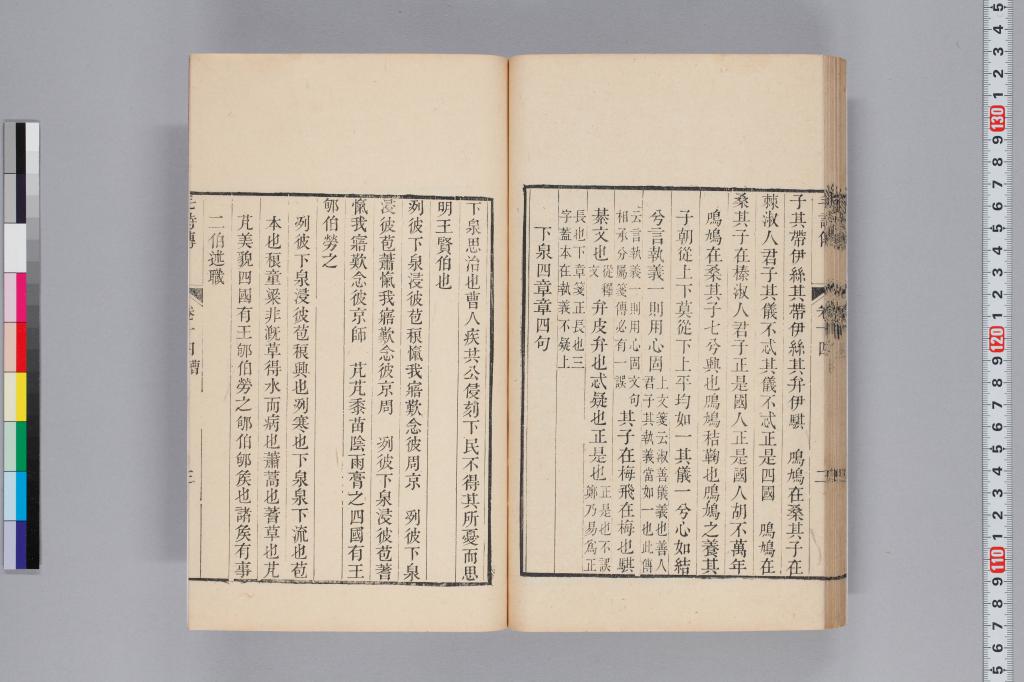 子其帶伊絲其帶伊絲其弁伊騏　鳲鳩在桑其子在
棘淑人君子其儀不忒其儀不忒正是四國　鳲鳩在
桑其子在榛淑人君子正是國人正是國人胡不萬年
鳲鳩在桑其子七兮興也鳲鳩秸鞠也鳲鳩之養其
子朝從上下莫從下上平均如一其儀一兮心如結
兮言執義一則用心固上文箋云淑善儀義也善人
君子其執義當如一也此傳
云言執義一則用心固文句
相承分屬箋傳必有一誤其子在梅飛在梅也騏
綦文也從釋
文弁皮弁也忒疑也正是也正是也不誤
鄭乃易為正
長也下章箋正長也三
字蓋本在執義不疑上
下泉四章章四句
下泉思治也曹人疾共公侵刻下民不得其所憂而思
明王賢伯也
冽彼下泉浸彼苞稂愾我寤歎念彼周京　冽彼下泉
浸彼苞蕭愾我寤歎念彼京周　冽彼下泉浸彼苞蓍
愾我寤歎念彼京師　芃芃黍苗陰雨膏之四國有王
郇伯勞之
冽彼下泉浸彼苞稂興也冽寒也下泉泉下流也苞
本也稂童粱非溉草得水而病也蕭蒿也蓍草也芃
芃美貌四國有王郇伯勞之郇伯郇矦也諸矦有事
二伯述職
卷十四曹
三